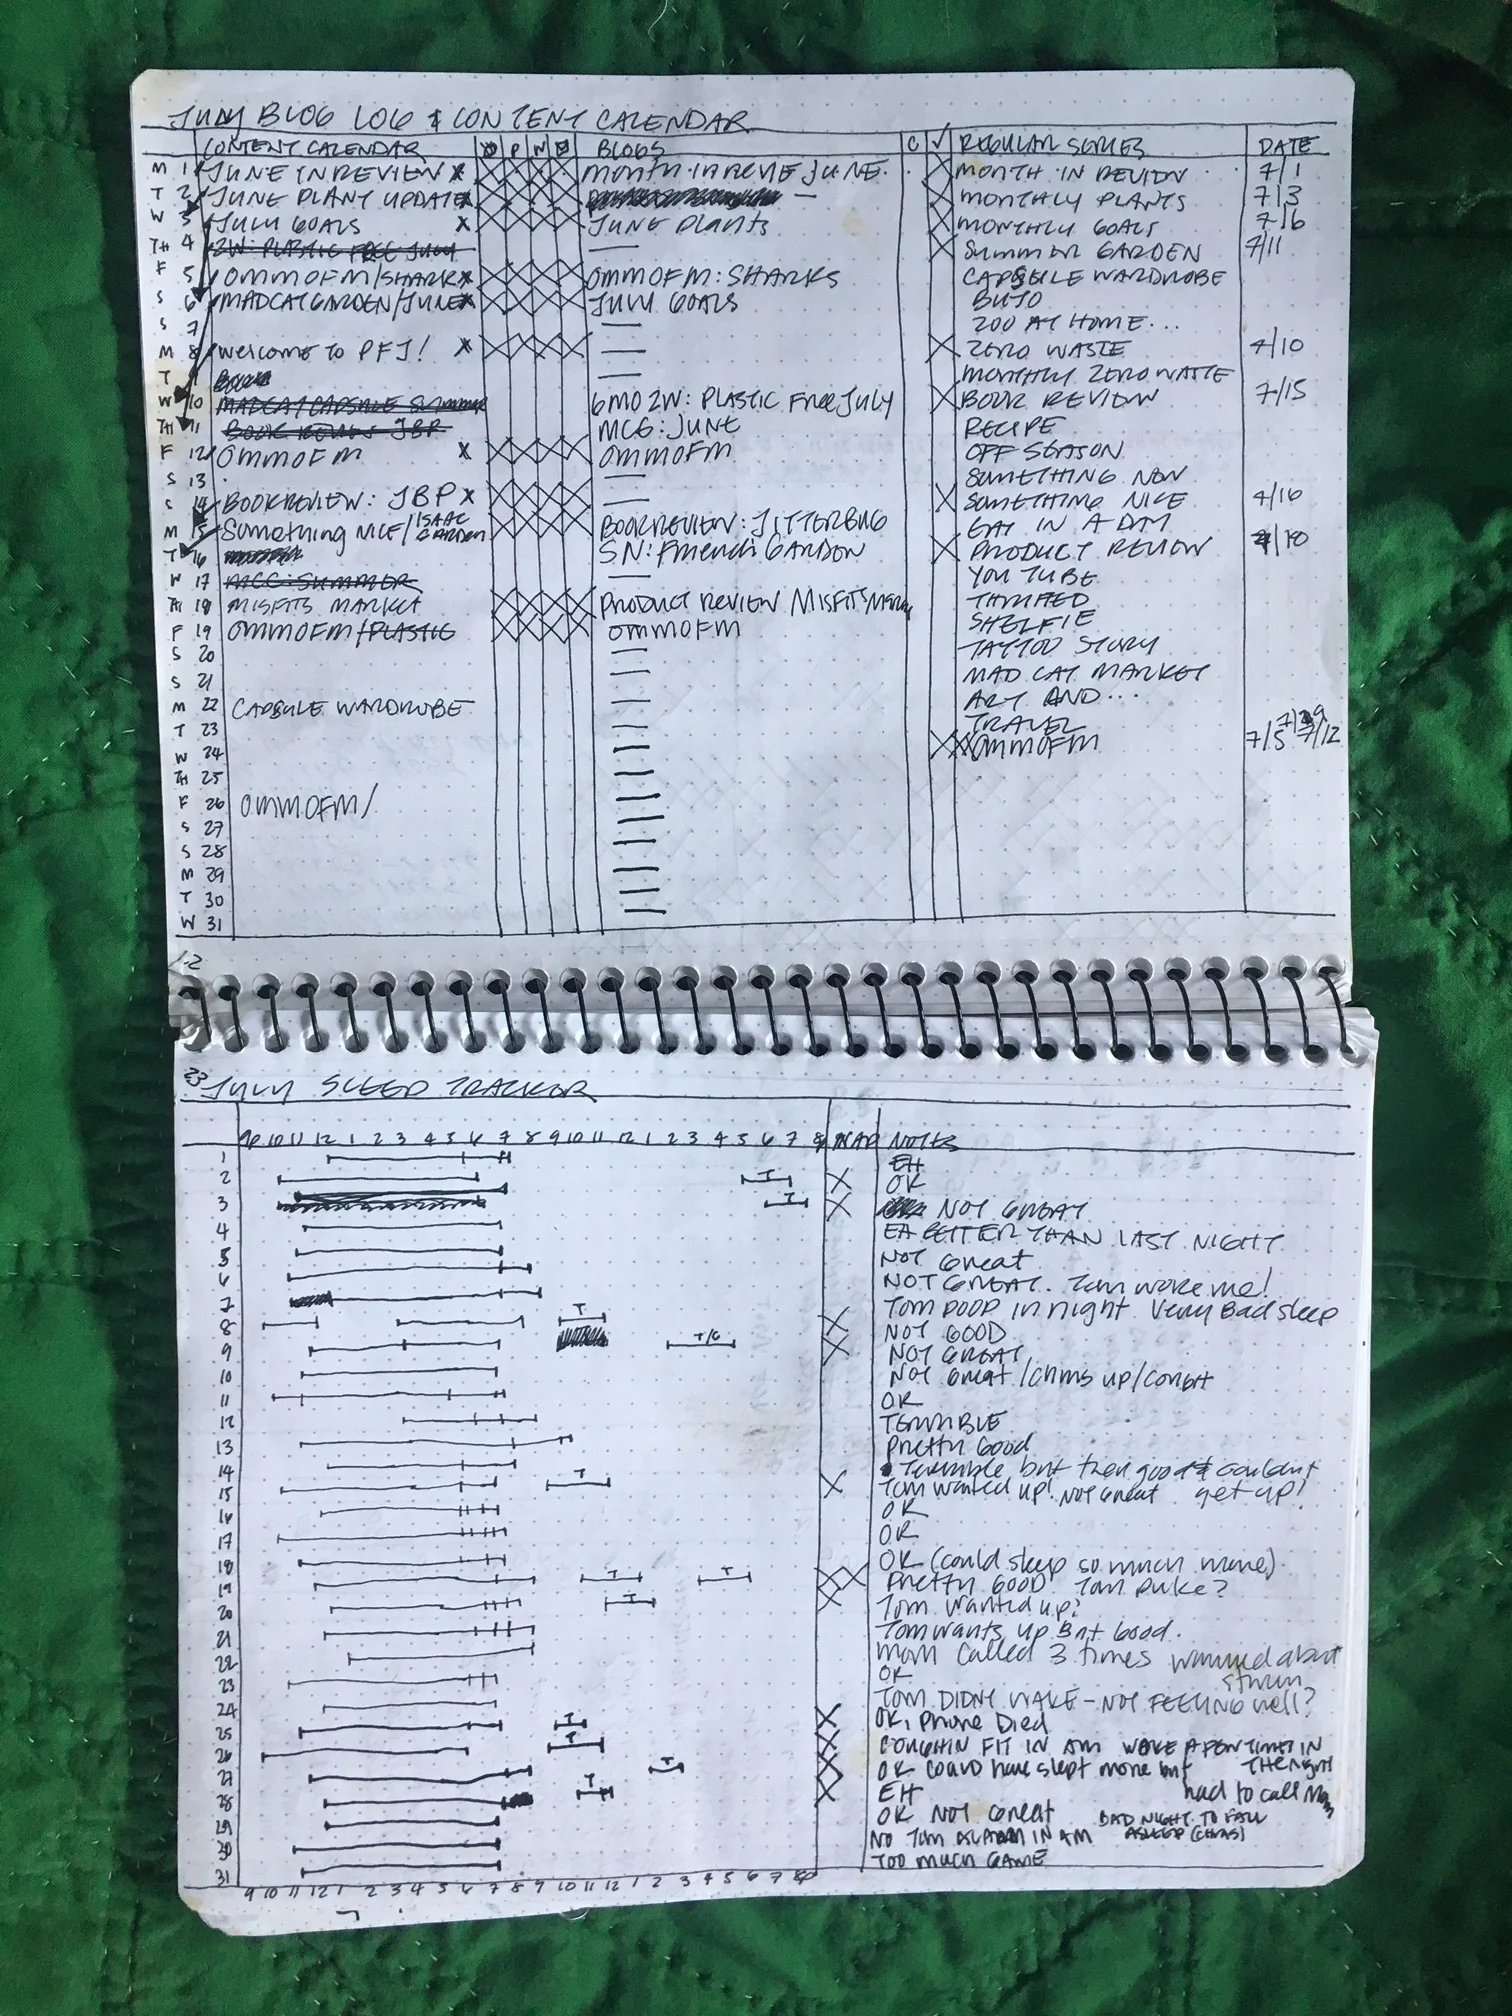 JULY BLOG LOG & CONTENT CALENDAR
CONTENT CALENDAR P N BLOGS C √ REGULAR SERIES DATE
M 1 JUNE IN REVIEW X MONTH IN REVIE JUNE. MONTH IN REVIEW 7/1
T 2 JUNE PLANT UPDATE X — MONTHLY PLANTS 7/3
W 3 JULY GOALS X JUNE PLANTS MONTHLY GOALS 7/6
TH 4 2W: PLASTIC FREE JULY — SUMMER GARDEN 7/11
F 5 OMMOFM/SHARK X OMMOFM: SHARKS CAPSULE WARDROBE
S 6 MADCATGARDEN/JUNE X JULY GOALS BUJO
S 7 — ZOO AT HOME...
M 8 WELCOME TO PFJ! X — ZERO WASTE 7/10
T — MONTHLY ZERO WASTE
W 10 MADCAT CAPSULE SUMMER 6MO ZW: PLASTIC FREE JULY BOOK REVIEW 7/15
TH 11 BOOK REVIEW JBP MCG: JUNE RECIPE
F 12 OMMOFM X OMMOFM OFF SEASON
S 13 — SOMETHING NEW
S 14 BOOK REVIEW: JBP X — SOMETHING NICE 7/16
M 15 SOMETHING NICE/ISAAC GARDEN BOOKREVIEW: JITTERBUG EAT IN A DAY
T 16 SN: FRIENDS GARDEN PRODUCT REVIEW /18
W 17 MCC: SUMMER — YOU TUBE
TH 18 MISFITS MARKET PRODUCT REVIEW MISFITS MARKET THRIFTED
F 19 OMMOFM/PLASTIC OMMOFM SHELFIE
S 20 — TATTOO STORY
S 21 — MAD CAT MARKET
M 22 CAPSULE WARDROBE — ART AND...
T 23 — TRAVEL 7/19
W 24 — OMMOFM 7/5 7/12
TH 25 —
F 26 OMMOFM/ —
S 27 —
S 28 —
M 29 —
T 30 —
W 31 —
23 JULY SLEEP TRACKER
9 10 11 12 1 2 3 4 5 6 7 8 9 10 11 12 1 2 3 4 5 6 7 8 NAP NOTES
1 EH
2 T X OK
3 T X NOT GREAT
4 EH BETTER THAN LAST NIGHT
5 NOT GREAT
6 NOT GREAT. TOM WOKE ME!
7 TOM POOP IN NIGHT VERY BAD SLEEP
8 T X NOT GOOD
9 T/C X NOT GREAT
10 NOT GREAT/CHRIS UP/COUGH
11 OK
12 TERRIBLE
13 PRETTY GOOD
14 TERRIBLE BUT THEN GOOD & COULDN'T GET UP!
15 T X TOM WANTED UP! NOT GREAT
16 OK
17 OK
18 OK (COULD SLEEP SO MUCH MORE)
19 T T XX PRETTY GOOD TOM PUKE?
20 T X TOM WANTED UP?
21 TOM WANTS UP BUT GOOD.
22 MOM CALLED 3 TIMES WORRIED ABOUT STORM
23 OK
24 TOM DIDNT WAKE - NOT FEELING WELL?
25 T X OK, PHONE DIED
26 T X COUGHIN FIT IN AM WOKE A FEW TIMES IN THE NIGHT
27 T X OK COULD HAVE SLEPT MORE BUT HAD TO CALL MOM
28 T X EH
29 OK NOT GREAT BAD NIGHT TO FALL ASLEEP (CHRIS)
30 NO TOM ALARM IN AM
31 TOO MUCH GAME
9 10 11 12 1 2 3 4 5 6 7 8 9 10 11 12 1 2 3 4 5 6 7 8